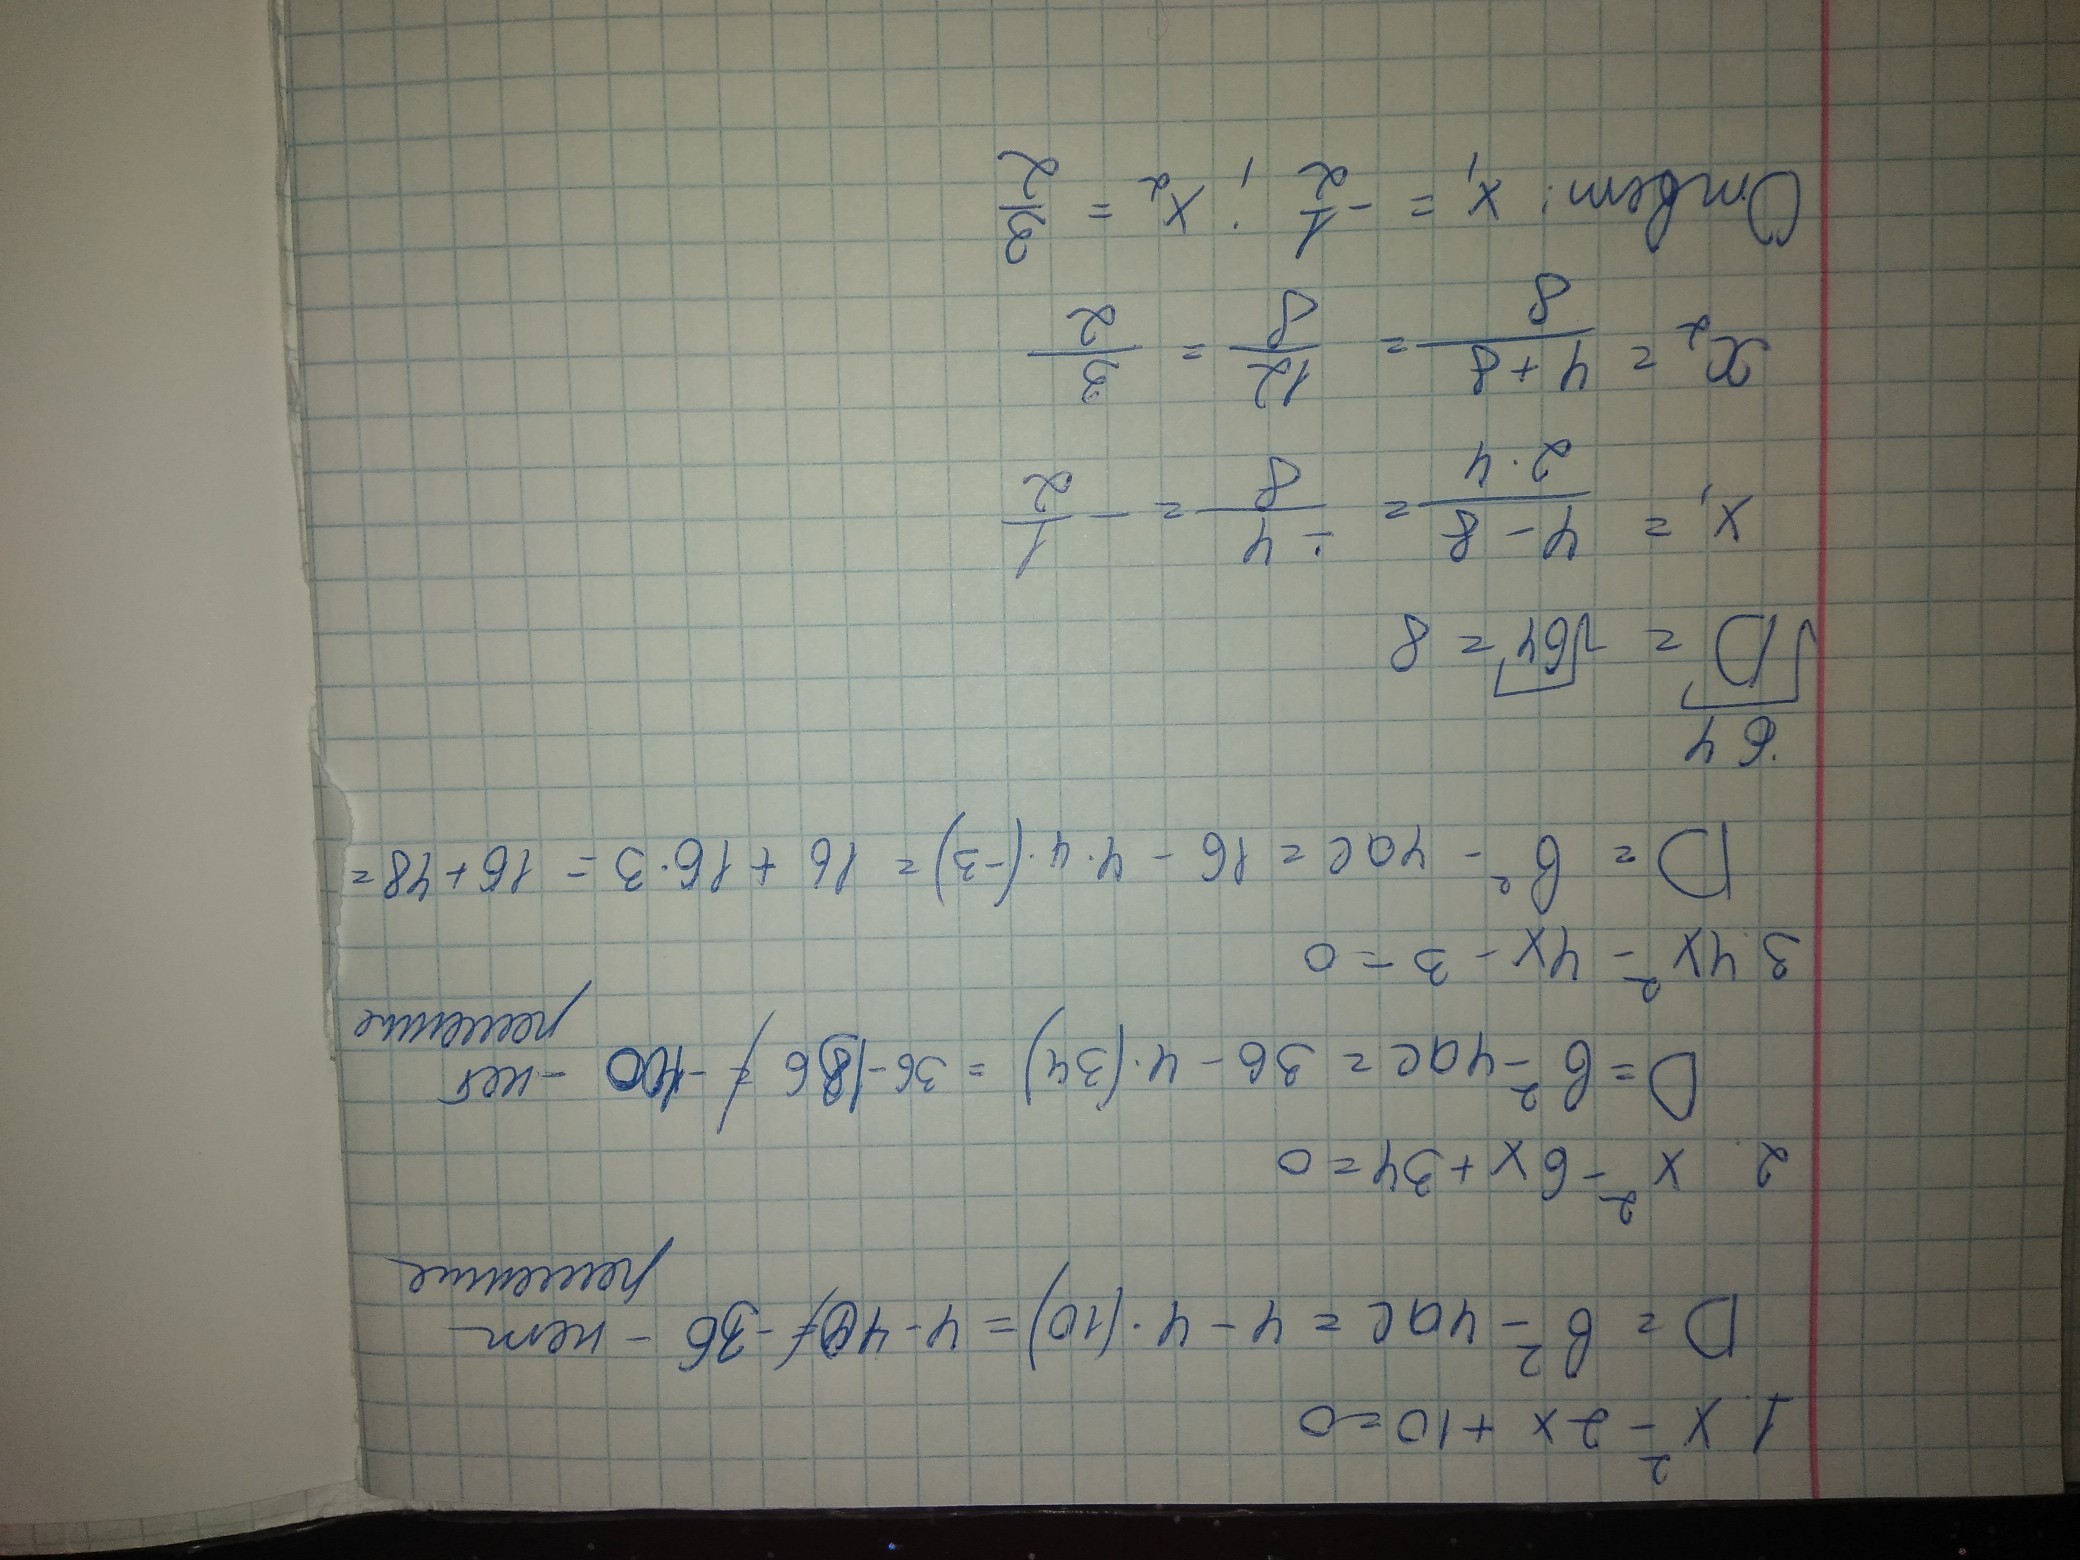 1. x² - 2x + 10 = 0
D = b² - 4ac = 4 - 4·(10) = 4 - 40 = -36 - нет
решение
2. x² - 6x + 34 = 0
D = b² - 4ac = 36 - 4·(34) = 36 - 136 = -100 - нет
решение
3. 4x² - 4x - 3 = 0
D = b² - 4ac = 16 - 4·4·(-3) = 16 + 16·3 = 16 + 48 =
64
√D = √64 = 8
x₁ = (4 - 8)/(2·4) = -4/8 = -1/2
x₂ = (4 + 8)/8 = 12/8 = 3/2
Ответ: x₁ = -1/2; x₂ = 3/2